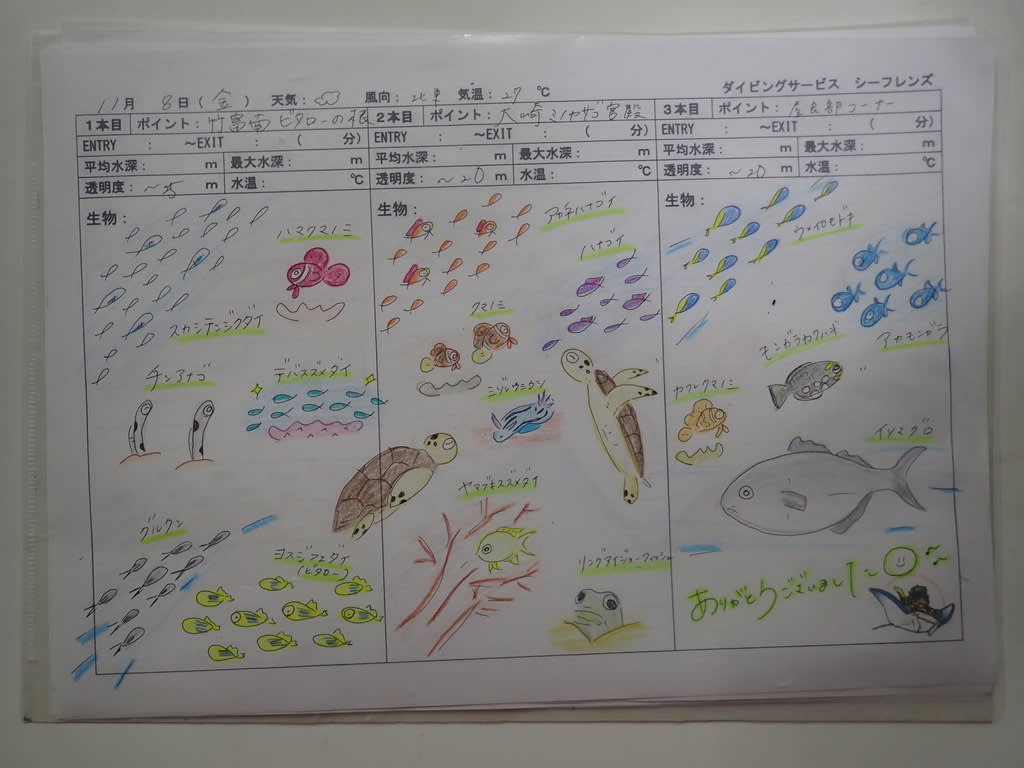 ダイビングサービス シーフレンズ
11月 8日(金) 天気: 風向: 北東 気温: 27 ℃
1本目 ポイント: 竹富南ビタローの根
ENTRY : ~EXIT : ( 分)
平均水深: m 最大水深: m
透明度: ~25 m 水温: ℃
生物:
スカシテンジクダイ
ハマクマノミ
チンアナゴ
デバスズメダイ
グルクン
ヨスジフエダイ
(ビタロー)
2本目 ポイント: 大崎ミノカサゴ宮殿
ENTRY : ~EXIT : ( 分)
平均水深: m 最大水深: m
透明度: ~20 m 水温: ℃
生物:
アカネハナゴイ
ハナゴイ
クマノミ
ミゾレウミウシ
ヤマブキスズメダイ
リングアイジョーフィッシュ
3本目 ポイント: 屋良部コーナー
ENTRY : ~EXIT : ( 分)
平均水深: m 最大水深: m
透明度: ~20 m 水温: ℃
生物:
ウメイロモドキ
モンガラカワハギ
アカモンガラ
カクレクマノミ
イソマグロ
ありがとうございました~